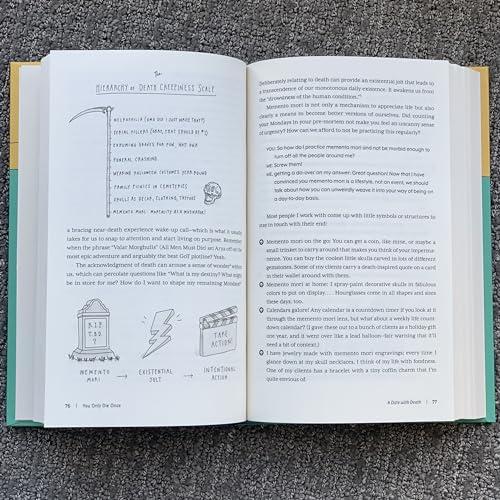 The
HIERARCHY OF DEATH CREEPINESS SCALE
NECROPHILIA (AND DID I JUST MAKE THAT?)
SERIAL KILLERS (WAIT, THAT SHOULD BE #1)
EXPLORING GRAVES FOR FUN, NOT OWN
FUNERAL CRASHING
WEARING HALLOWEEN COSTUMES YEAR ROUND
FAMILY PICNICS IN CEMETERIES
SKULLS AS DECOR, CLOTHING, TATTOOS
MEMENTO MORI: MORTALITY AS A MOTIVATOR!
a bracing near-death experience wake-up call—which is what it usually
takes for us to snap to attention and start living on purpose. Remember
when the phrase "Valar Morghulis" (All Men Must Die) set Arya off on the
most epic adventure and arguably the best GoT plotline? Yeah.
The acknowledgment of death can arouse a sense of wonder within
us, which can percolate questions like "What is my destiny? What may
be in store for me? How do I want to shape my remaining Mondays
R.I.P.
T.B.D.
?
TAKE
ACTION!
MEMENTO
MORI
EXISTENTIAL
JOLT
INTENTIONAL
ACTION
76 | You Only Die Once
Deliberately relating to death can provide an existential jolt that leads to
a transcendence of our monotonous daily existence. It awakens us from
the "drowsiness of the human condition."
Memento mori is not only a mechanism to appreciate life but also
clearly a means to become better versions of ourselves. Did counting
your Mondays in your pre-mortem not make you feel an uncanny sense
of urgency? How can we afford to not be practicing this regularly?
YOU: So how do I practice memento mori and not be morbid enough to
turn off all the people around me?
ME: Screw them!
ME, getting a do-over on my answer: Great question! Now that I have
convinced you memento mori is a lifestyle, not an event, we should
talk about how you can unweirdly weave it into your way of being on
a day-to-day basis.
Most people I work with come up with little symbols or structures to
stay in touch with their end:
Memento mori on the go: You can get a coin, like mine, or maybe a
small trinket to carry around that makes you think of your imperma-
nence. You can buy the coolest little skulls carved in lots of different
gemstones. Some of my clients carry a death-inspired quote on a card
in their wallet around with them.
Memento mori at home: I spray-paint decorative skulls in fabulous
colors to put on display. . . . Hourglasses come in all shapes and sizes
these days, too.
Calendars galore! Any calendar is a countdown timer if you look at it
through the memento mori lens, but what about a weekly life count-
down calendar? (I gave these out to a bunch of clients as a holiday gift
one year, and it went over like a lead balloon—fair warning that it'll
need a bit of context.)
I have jewelry made with memento mori engravings; every time I
glance down at my skull necklaces, I think of my life with fondness.
One of my clients has a bracelet with a tiny coffin charm that I'm
quite envious of.
A Date with Death | 77